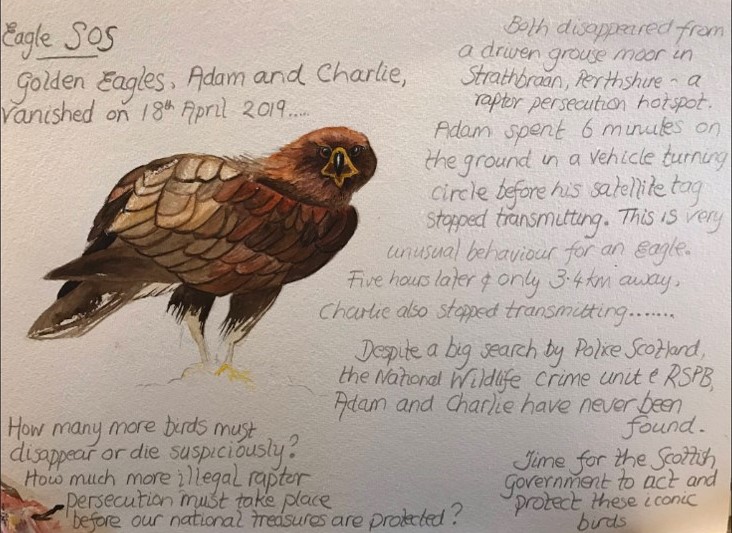 Eagle SOS
Golden Eagles, Adam and Charlie,
Vanished on 18th April 2019.....
Both disappeared from
a driven grouse moor in
Strathbraan, Perthshire - a
raptor persecution hotspot.
Adam spent 6 minutes on
the ground in a vehicle turning
circle before his satellite tag
stopped transmitting. This is very
unusual behaviour for an eagle.
Five hours later & only 3.4km away,
Charlie also stopped transmitting.......
Despite a big search by Police Scotland,
the National Wildlife Crime unit & RSPB,
Adam and Charlie have never been
found.
How many more birds must
disappear or die suspiciously?
How much more illegal raptor
persecution must take place
before our national treasures are protected?
Time for the Scottish
Government to act and
protect these iconic
birds